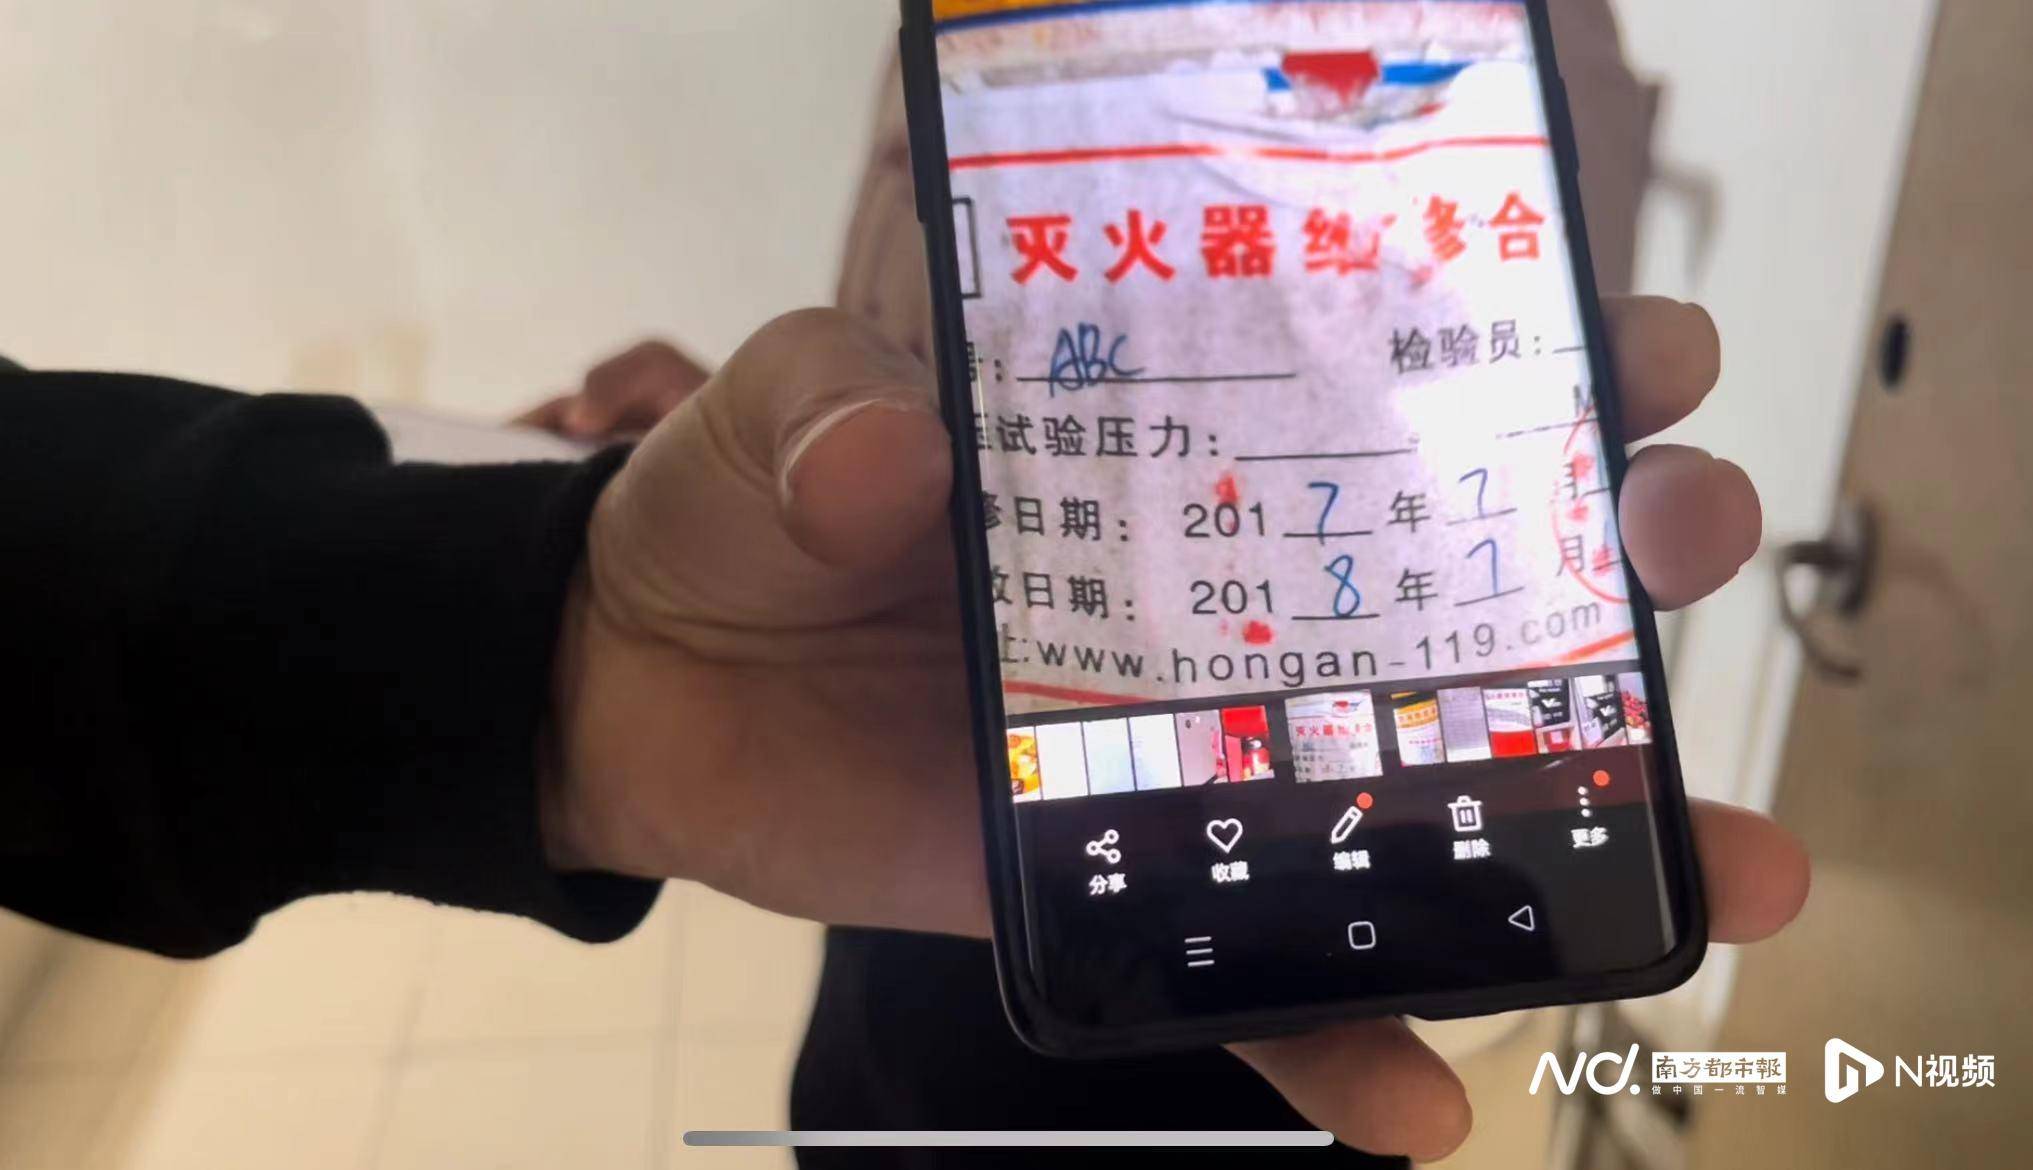 灭火器维修合
ABC 检验员:
试验压力:
修日期: 2017年7月
日期: 2018年7月
www.hongan-119.com
分享 收藏 编辑 删除 更多
南方都市報 N视频
做中国一流智媒